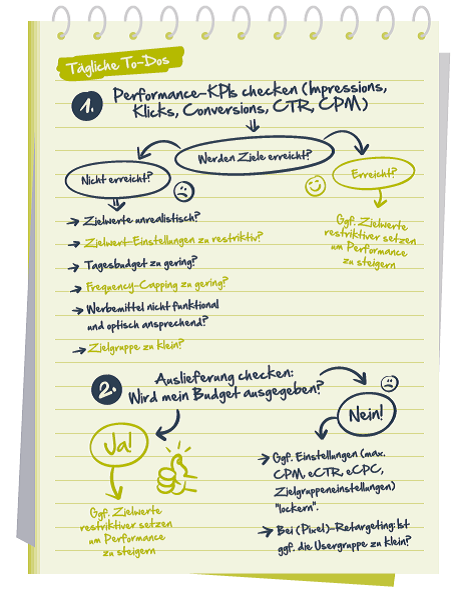 Tägliche To-Dos
1.
Performance-KPIs checken (Impressions,
Klicks, Conversions, CTR, CPM)
Werden Ziele erreicht?
Nicht erreicht?
Erreicht?
Zielwerte unrealistisch?
Zielwert-Einstellungen zu restriktiv?
Tagesbudget zu gering?
Frequency-Capping zu gering?
Werbemittel nicht funktional
und optisch ansprechend?
Zielgruppe zu klein?
Ggf. Zielwerte
restriktiver setzen
um Performance
zu steigern
2.
Auslieferung checken:
Wird mein Budget ausgegeben?
Ja!
Ggf. Zielwerte
restriktiver setzen
um Performance
zu steigern
Nein!
Ggf. Einstellungen (max.
CPM, eCTR, eCPC,
Zielgruppeneinstellungen)
"lockern".
Bei (Pixel)-Retargeting: Ist
ggf. die Usergruppe zu klein?